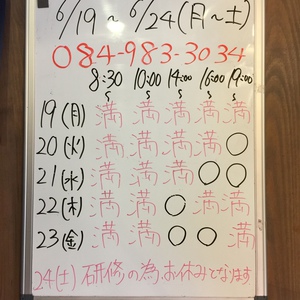 6/19〜6/24(月〜土)
084-983-3034
8:30〜 10:00〜 14:00〜 16:00〜 19:00〜
19(月) 満 満 満 満 満
20(火) 満 満 満 満 ○
21(水) 満 満 満 ○ ○
22(木) 満 満 ○ 満 満
23(金) 満 満 ○ ○ 満
24(土) 研修の為お休み